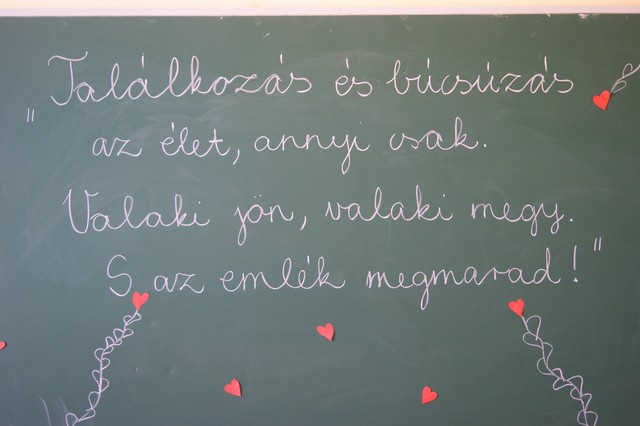 "Találkozás és búcsúzás
az élet, annyi csak.
Valaki jön, valaki megy.
S az emlék megmarad!"